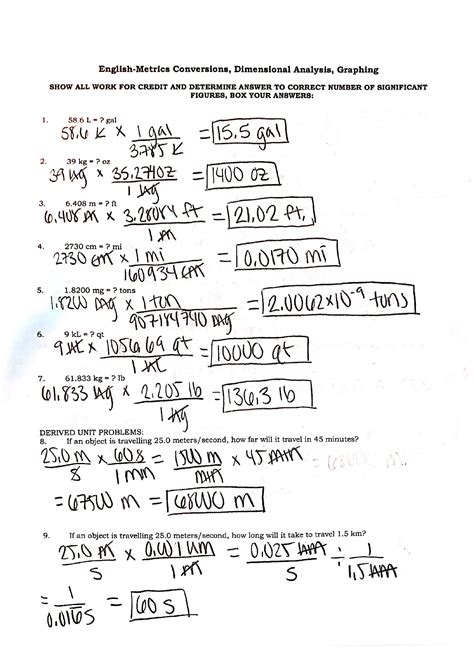 English-Metrics Conversions, Dimensional Analysis, Graphing
SHOW ALL WORK FOR CREDIT AND DETERMINE ANSWER TO CORRECT NUMBER OF SIGNIFICANT
FIGURES, BOX YOUR ANSWERS:
1. 58.6 L = ? gal
58.6 L × 1 gal / 3.785 L = 15.5 gal
2. 39 kg = ? oz
39 kg × 35.274 oz / 1 kg = 1400 oz
3. 6.408 m = ? ft
6.408 m × 3.2084 ft / 1 m = 21.02 ft.
4. 2730 cm = ? mi
2730 cm × 1 mi / 160934 cm = 0.0170 mi
5. 1.8200 mg = ? tons
1.8200 mg × 1 ton / 907184740 mg = 2.0062×10⁻⁹ tons
6. 9 kL = ? qt
9 kL × 1056.69 qt / 1 kL = 10000 qt
7. 61.833 kg = ? lb
61.833 kg × 2.205 lb / 1 kg = 136.3 lb
DERIVED UNIT PROBLEMS:
8. If an object is travelling 25.0 meters/second, how far will it travel in 45 minutes?
25.0 m / s × 60 s / 1 min = 1500 m / min × 45 min
= 67500 m = 68000 m
9. If an object is travelling 25.0 meters/second, how long will it take to travel 1.5 km?
25.0 m / s × 0.001 km / 1 m = 0.025 km / s ÷ 1 / 1.5 km
= 1 / 0.016 s = 60 s